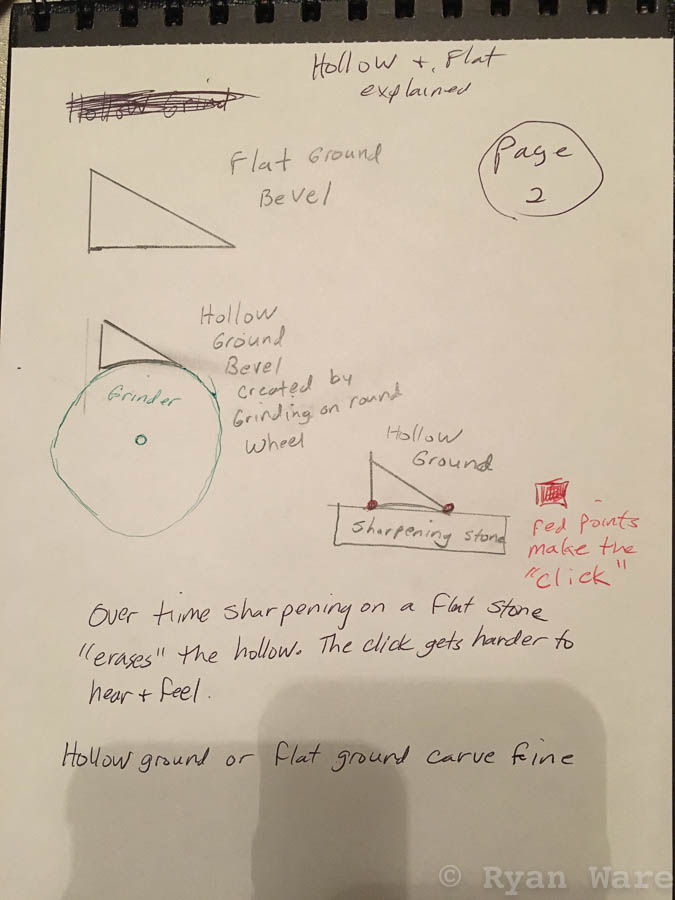 Hollow + Flat
explained
Hollow Grind
Page
2
Flat Ground
Bevel
Hollow
Ground
Bevel
created by
Grinding on round
wheel
Grinder
Hollow
Ground
Sharpening stone
red points
make the
"click"
Over time sharpening on a flat stone
"erases" the hollow. The click gets harder to
hear + feel.
Hollow ground or flat ground carve fine
© Ryan Ware